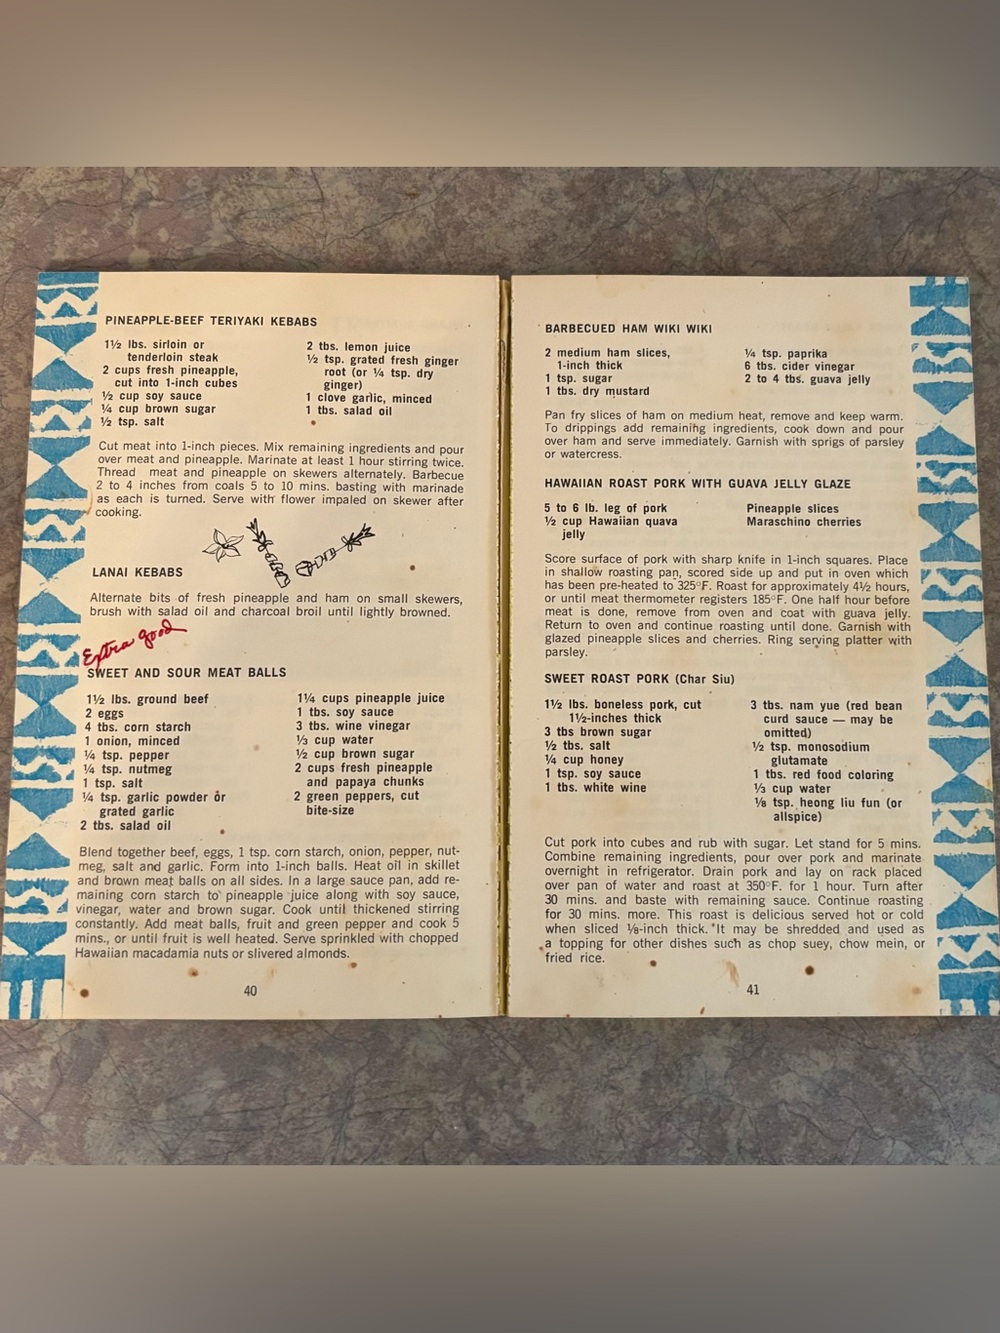 PINEAPPLE-BEEF TERIYAKI KEBABS
1½ lbs. sirloin or
tenderloin steak
2 cups fresh pineapple,
cut into 1-inch cubes
½ cup soy sauce
¼ cup brown sugar
½ tsp. salt
2 tbs. lemon juice
½ tsp. grated fresh ginger
root (or ¼ tsp. dry
ginger)
1 clove garlic, minced
1 tbs. salad oil
Cut meat into 1-inch pieces. Mix remaining ingredients and pour
over meat and pineapple. Marinate at least 1 hour stirring twice.
Thread meat and pineapple on skewers alternately. Barbecue
2 to 4 inches from coals 5 to 10 mins. basting with marinade
as each is turned. Serve with flower impaled on skewer after
cooking.
LANAI KEBABS
Alternate bits of fresh pineapple and ham on small skewers,
brush with salad oil and charcoal broil until lightly browned.
Extra good
SWEET AND SOUR MEAT BALLS
1½ lbs. ground beef
2 eggs
4 tbs. corn starch
1 onion, minced
¼ tsp. pepper
¼ tsp. nutmeg
1 tsp. salt
¼ tsp. garlic powder or
grated garlic
2 tbs. salad oil
1¼ cups pineapple juice
1 tbs. soy sauce
3 tbs. wine vinegar
⅓ cup water
½ cup brown sugar
2 cups fresh pineapple
and papaya chunks
2 green peppers, cut
bite-size
Blend together beef, eggs, 1 tsp. corn starch, onion, pepper, nut-
meg, salt and garlic. Form into 1-inch balls. Heat oil in skillet
and brown meat balls on all sides. In a large sauce pan, add re-
maining corn starch to pineapple juice along with soy sauce,
vinegar, water and brown sugar. Cook until thickened stirring
constantly. Add meat balls, fruit and green pepper and cook 5
mins., or until fruit is well heated. Serve sprinkled with chopped
Hawaiian macadamia nuts or slivered almonds.
40
BARBECUED HAM WIKI WIKI
2 medium ham slices,
1-inch thick
1 tsp. sugar
1 tbs. dry mustard
¼ tsp. paprika
6 tbs. cider vinegar
2 to 4 tbs. guava jelly
Pan fry slices of ham on medium heat, remove and keep warm.
To drippings add remaining ingredients, cook down and pour
over ham and serve immediately. Garnish with sprigs of parsley
or watercress.
HAWAIIAN ROAST PORK WITH GUAVA JELLY GLAZE
5 to 6 lb. leg of pork
½ cup Hawaiian quava
jelly
Pineapple slices
Maraschino cherries
Score surface of pork with sharp knife in 1-inch squares. Place
in shallow roasting pan, scored side up and put in oven which
has been pre-heated to 325°F. Roast for approximately 4½ hours,
or until meat thermometer registers 185°F. One half hour before
meat is done, remove from oven and coat with guava jelly.
Return to oven and continue roasting until done. Garnish with
glazed pineapple slices and cherries. Ring serving platter with
parsley.
SWEET ROAST PORK (Char Siu)
1½ lbs. boneless pork, cut
1½-inches thick
3 tbs brown sugar
½ tbs. salt
¼ cup honey
1 tsp. soy sauce
1 tbs. white wine
3 tbs. nam yue (red bean
curd sauce — may be
omitted)
½ tsp. monosodium
glutamate
1 tbs. red food coloring
⅓ cup water
⅛ tsp. heong liu fun (or
allspice)
Cut pork into cubes and rub with sugar. Let stand for 5 mins.
Combine remaining ingredients, pour over pork and marinate
overnight in refrigerator. Drain pork and lay on rack placed
over pan of water and roast at 350°F. for 1 hour. Turn after
30 mins. and baste with remaining sauce. Continue roasting
for 30 mins. more. This roast is delicious served hot or cold
when sliced ⅛-inch thick. It may be shredded and used as
a topping for other dishes such as chop suey, chow mein, or
fried rice.
41